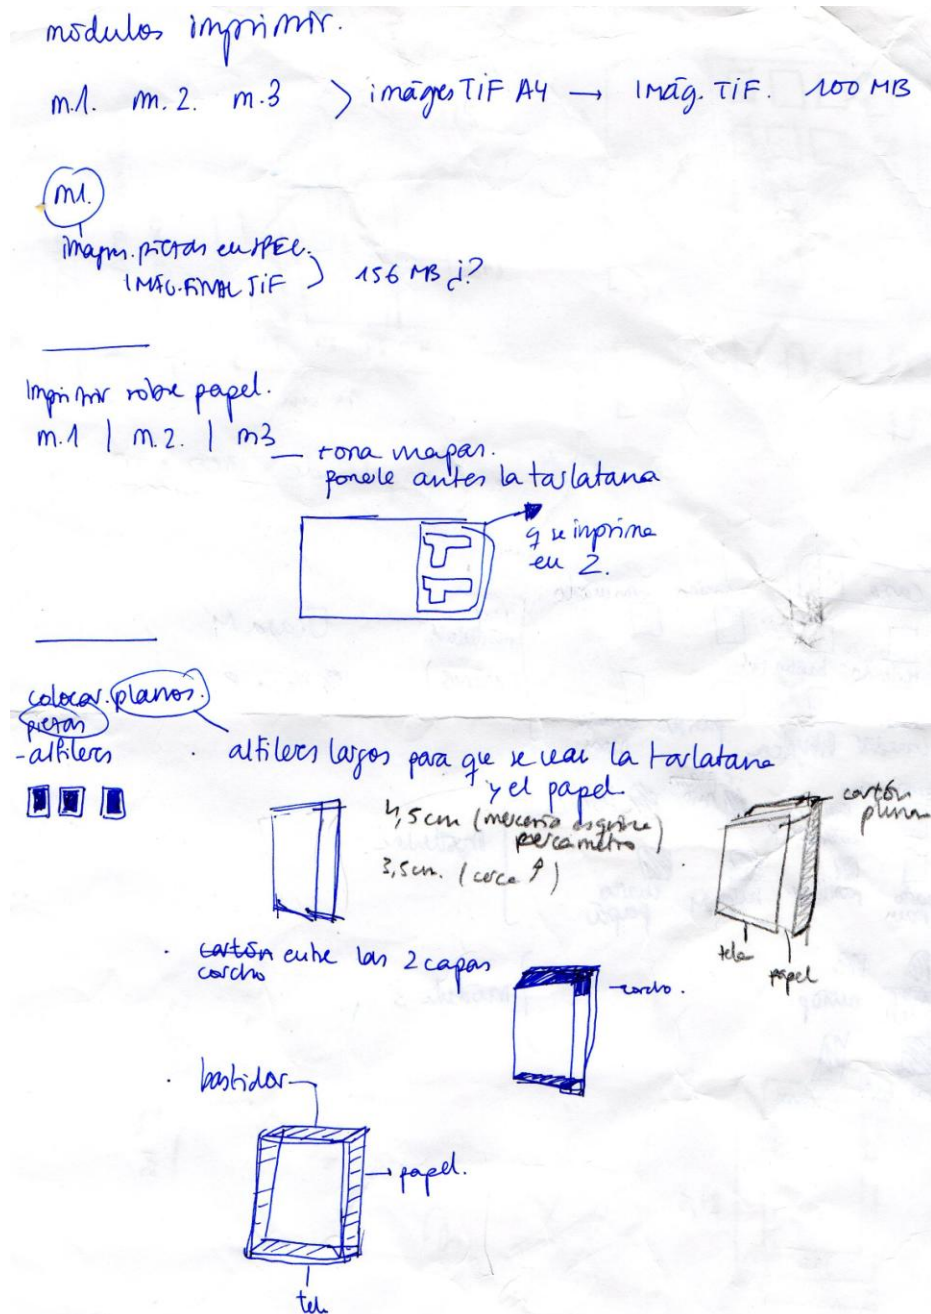 módulos imprimir.
m.1. m.2. m.3 > imáges TIF A4 → imág. TIF. 100 MB
m1.
IMÁG. FINAL TIF 156 MB ¿?
Imprimir sobre papel.
m.1 | m.2. | m3
zona mapas.
ponerle antes la tarlatana
q se imprime
en 2.
colocar. planos.
piezas
- alfileres
· alfileres largos para que se vean la tarlatana
y el papel.
4,5 cm (mercería esquina
percámetro)
3,5 cm. (cerca ↑)
cartón
pluma
tela
papel
· cartón entre las 2 capas
corcho
corcho.
· bastidor
papel.
tela